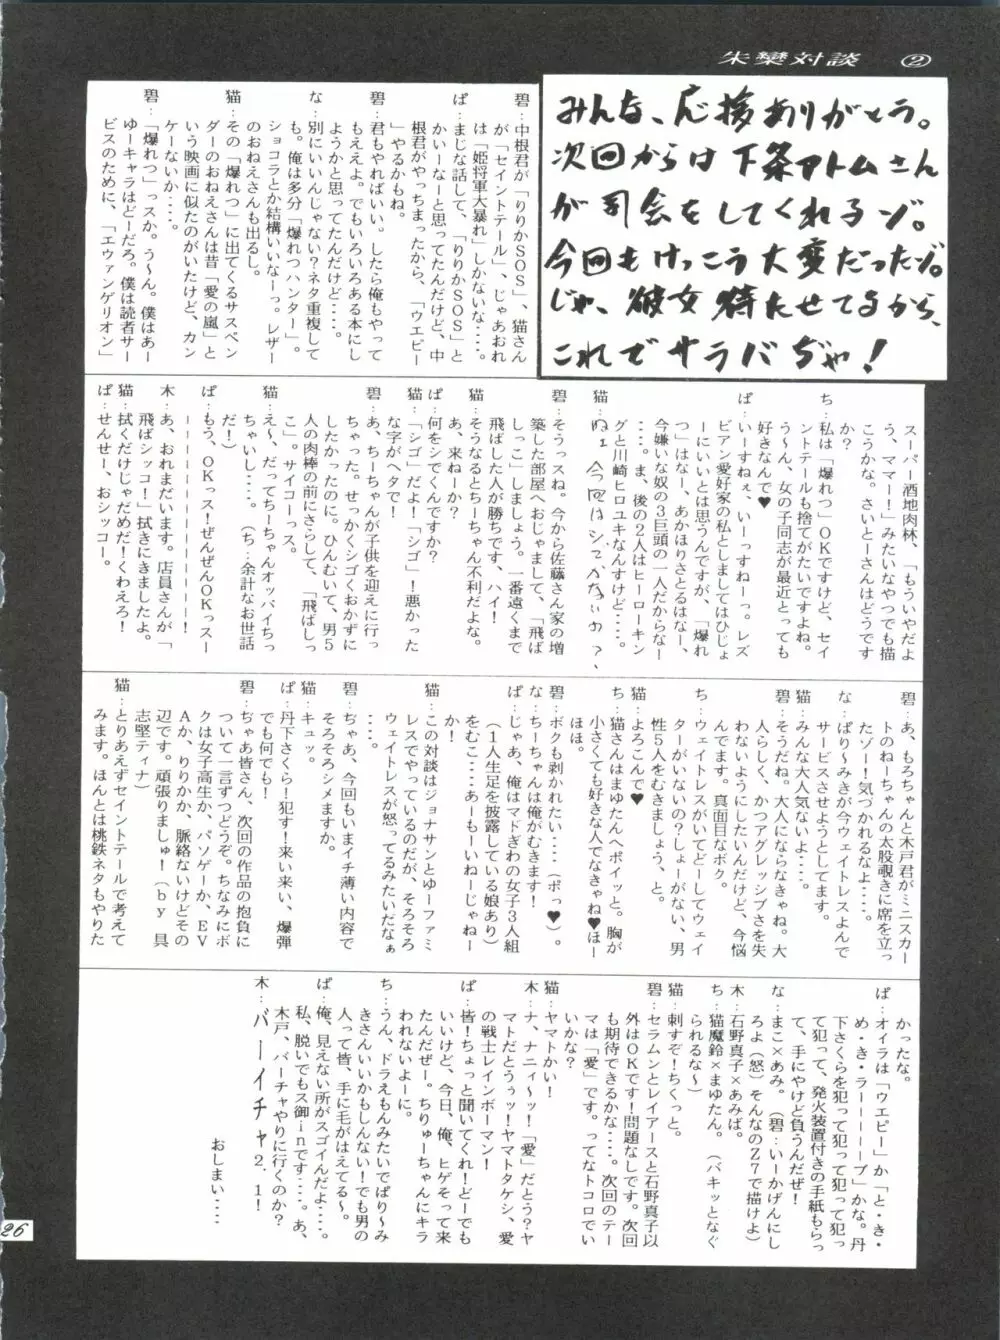 朱欒対談　②
みんな、応援ありがとう。
次回からは下条アトムさん
が司会をしてくれるゾ。
今回もけっこう大変だったゾ。
じゃ、彼女待たせてるから、
これでサラバぢゃ！
碧：中根君が「りりかSOS」、猫さん
が「セイントテール」、じゃあおれ
は「姫将軍大暴れ」しかないな‥‥。
ぱ：まじな話して、「りりかSOS」と
かいーなーと思ってたんだけど、中
根君がやっちまったから、「ウエピー
」やるかもね。
碧：君もやればいい。したら俺もやって
もええよ。でもいろいろある本にし
ようかと思ってたんだけど‥‥。
な：別にいいんじゃない？ネタ重複して
も。俺は多分「爆れつハンター」。
ショコラとか結構いいなーっ。レザー
のおねえさんも出るし。
猫：その「爆れつ」に出てくるサスペン
ダーのおねえさんは昔「愛の嵐」と
いう映画に似たのがいたけど、カン
ケーないか‥‥。
碧：「爆れつ」っスか。う～ん。僕はあー
ゆーキャラはどーだろ。僕は読者サー
ビスのために、「エヴァンゲリオン」
スーパー酒地肉林、「もういやだよ
う、ママー！」みたいなやつでも描
こうかな。さいとーさんはどうです
か？
ち：私は「爆れつ」OKですけど、セイ
ントテールも捨てがたいですよね。
う～ん、女の子同志が最近とっても
好きなんで♥
ぱ：いーすねぇ、いーっすねーっ。レズ
ビアン愛好家の私としましてはひじょ
ーにいいとは思うんですが、「爆れ
つ」はなー、あかほりさとるはなー、
今嫌いな奴の３巨頭の一人だからなー
。ま、後の２人はヒーローキン
グと川崎ヒロユキなんすけど‥‥。
猫：ねェ、今回はシモかないの？、
碧：そうっスね。今から佐藤さん家の増
築した部屋へおじゃまして、「飛ば
しっこ」しましょう。一番遠くまで
飛ばした人が勝ちです、ハイ！
猫：そうなるとちーちゃん不利だよな。
あ、来ねーか？
ぱ：何をシでくんですか？
猫：「シゴ」だよ！「シゴ」！悪かった
な字がヘタで！
碧：あ、ちーちゃんが子供を迎えに行っ
ちゃった。せっかくシゴくおかずに
したかったのに。ひんむいて、男５
人の肉棒の前にさらして、「飛ばしっ
こ」。サイコーっス。
猫：え～、だってちーちゃんオッパイちっ
ちゃいし‥‥。（ち：余計なお世話
だ！）
ぱ：もう、OKっス！ぜんぜんOKっスー
ーーーーーーーーー！
木：あ、おれまだいます。店員さんが「
飛ばシッコ！」拭きにきましたよ。
猫：拭くだけじゃだめだ！くわえろ！
ぱ：せんせー、おシッコー。
碧：あ、もろちゃんと木戸君がミニスカー
トのねーちゃんの太股覗きに席を立っ
たゾー！気づかれるなよ‥‥。
な：ぱり～みきが今ウェイトレスよんで
サービスさせようとしてます。
猫：みんな大人気ないよ‥‥。
碧：そうだね。大人にならなきゃね。大
人らしく、かつアグレッシブさを失
わないようにしたいんだけど、今悩
んでます。真面目なボク。
ち：ウェイトレスがいてどーしてウェイ
ターがいないの？しょーがない、男
性５人をむきましょう、と。
猫：よろこんで♥
ち：猫さんはまゆたんへポイッと。胸が
小さくても好きな人でなきゃね♥ほー
ほほ。
碧：ボクも剥かれたい‥‥（ポっ♥）。
な：ちーちゃんは俺がむきます！
ぱ：じゃあ、俺はマドぎわの女子３人組
（１人生足を披露している娘あり）
をむこ‥‥あーもーいねーじゃねー
か！
猫：この対談はジョナサンとゆーファミ
レスでやっているのだが、そろそろ
ウェイトレスが怒ってるみたいだなぁ
‥‥
碧：ぢゃあ、今回もいまイチ薄い内容で
そろそろシメますか。
猫：キュッ。
ぱ：丹下さくら！犯す！来い来い、爆弾
でも何でも！
碧：ぢゃあ皆さん、次回の作品の抱負に
ついて一言ずつどうぞ。ちなみにボ
クは女子高生か、パソゲーか、EV
Aか、りりかか、脈絡ないけどその
辺です。頑張りましゅ！（by　具
志堅ティナ）
猫：とりあえずセイントテールで考えて
みます。ほんとは桃鉄ネタもやりた
かったな。
ぱ：オィラは「ウエピー」か「と・き・
め・き・ラーーーーブ」かな。丹
下さくらを犯って犯って犯って犯っ
て犯って、発火装置付きの手紙もらっ
て、手にやけど負うんだぜ！
な：まこ×あみ。（碧：いーかげんにし
ろよ（怒）そんなのZ7で描けよ）
木：石野真子×あみば。
ち：猫魔鈴×まゆたん。（バキッとなぐ
られるな～）
猫：刺すぞ！ちくっと。
碧：セラムンとレイアースと石野真子以
外はOKです！問題なしです。次回
も期待できるかな‥‥。次回のテー
マは「愛」です。ってなトコロでい
いかな？
猫：ヤマトかい！
木：ナ、ナニィ～ッ！「愛」だとう？ヤ
マトだとうぅッ！ヤマトタケシ、愛
の戦士レインボーマン！
ぱ：皆！ちょっと聞いてくれ！どーでも
いいけど、今日、俺、ヒゲそって来
たんだぜー。ちりゅーちゃんにキラ
われないよーに。
ち：うん、ドラえもんみたいでぱり～み
きさんいいかもしんない！でも男の
人って皆、手に毛がはえてる～。
ぱ：俺、見えない所がスゴイんだよ‥‥。
私、脱いでもス御inです‥‥。あ、
木戸、バーチャやりに行くのか？
木：バーイチャ２．１！
おしまい‥‥
26